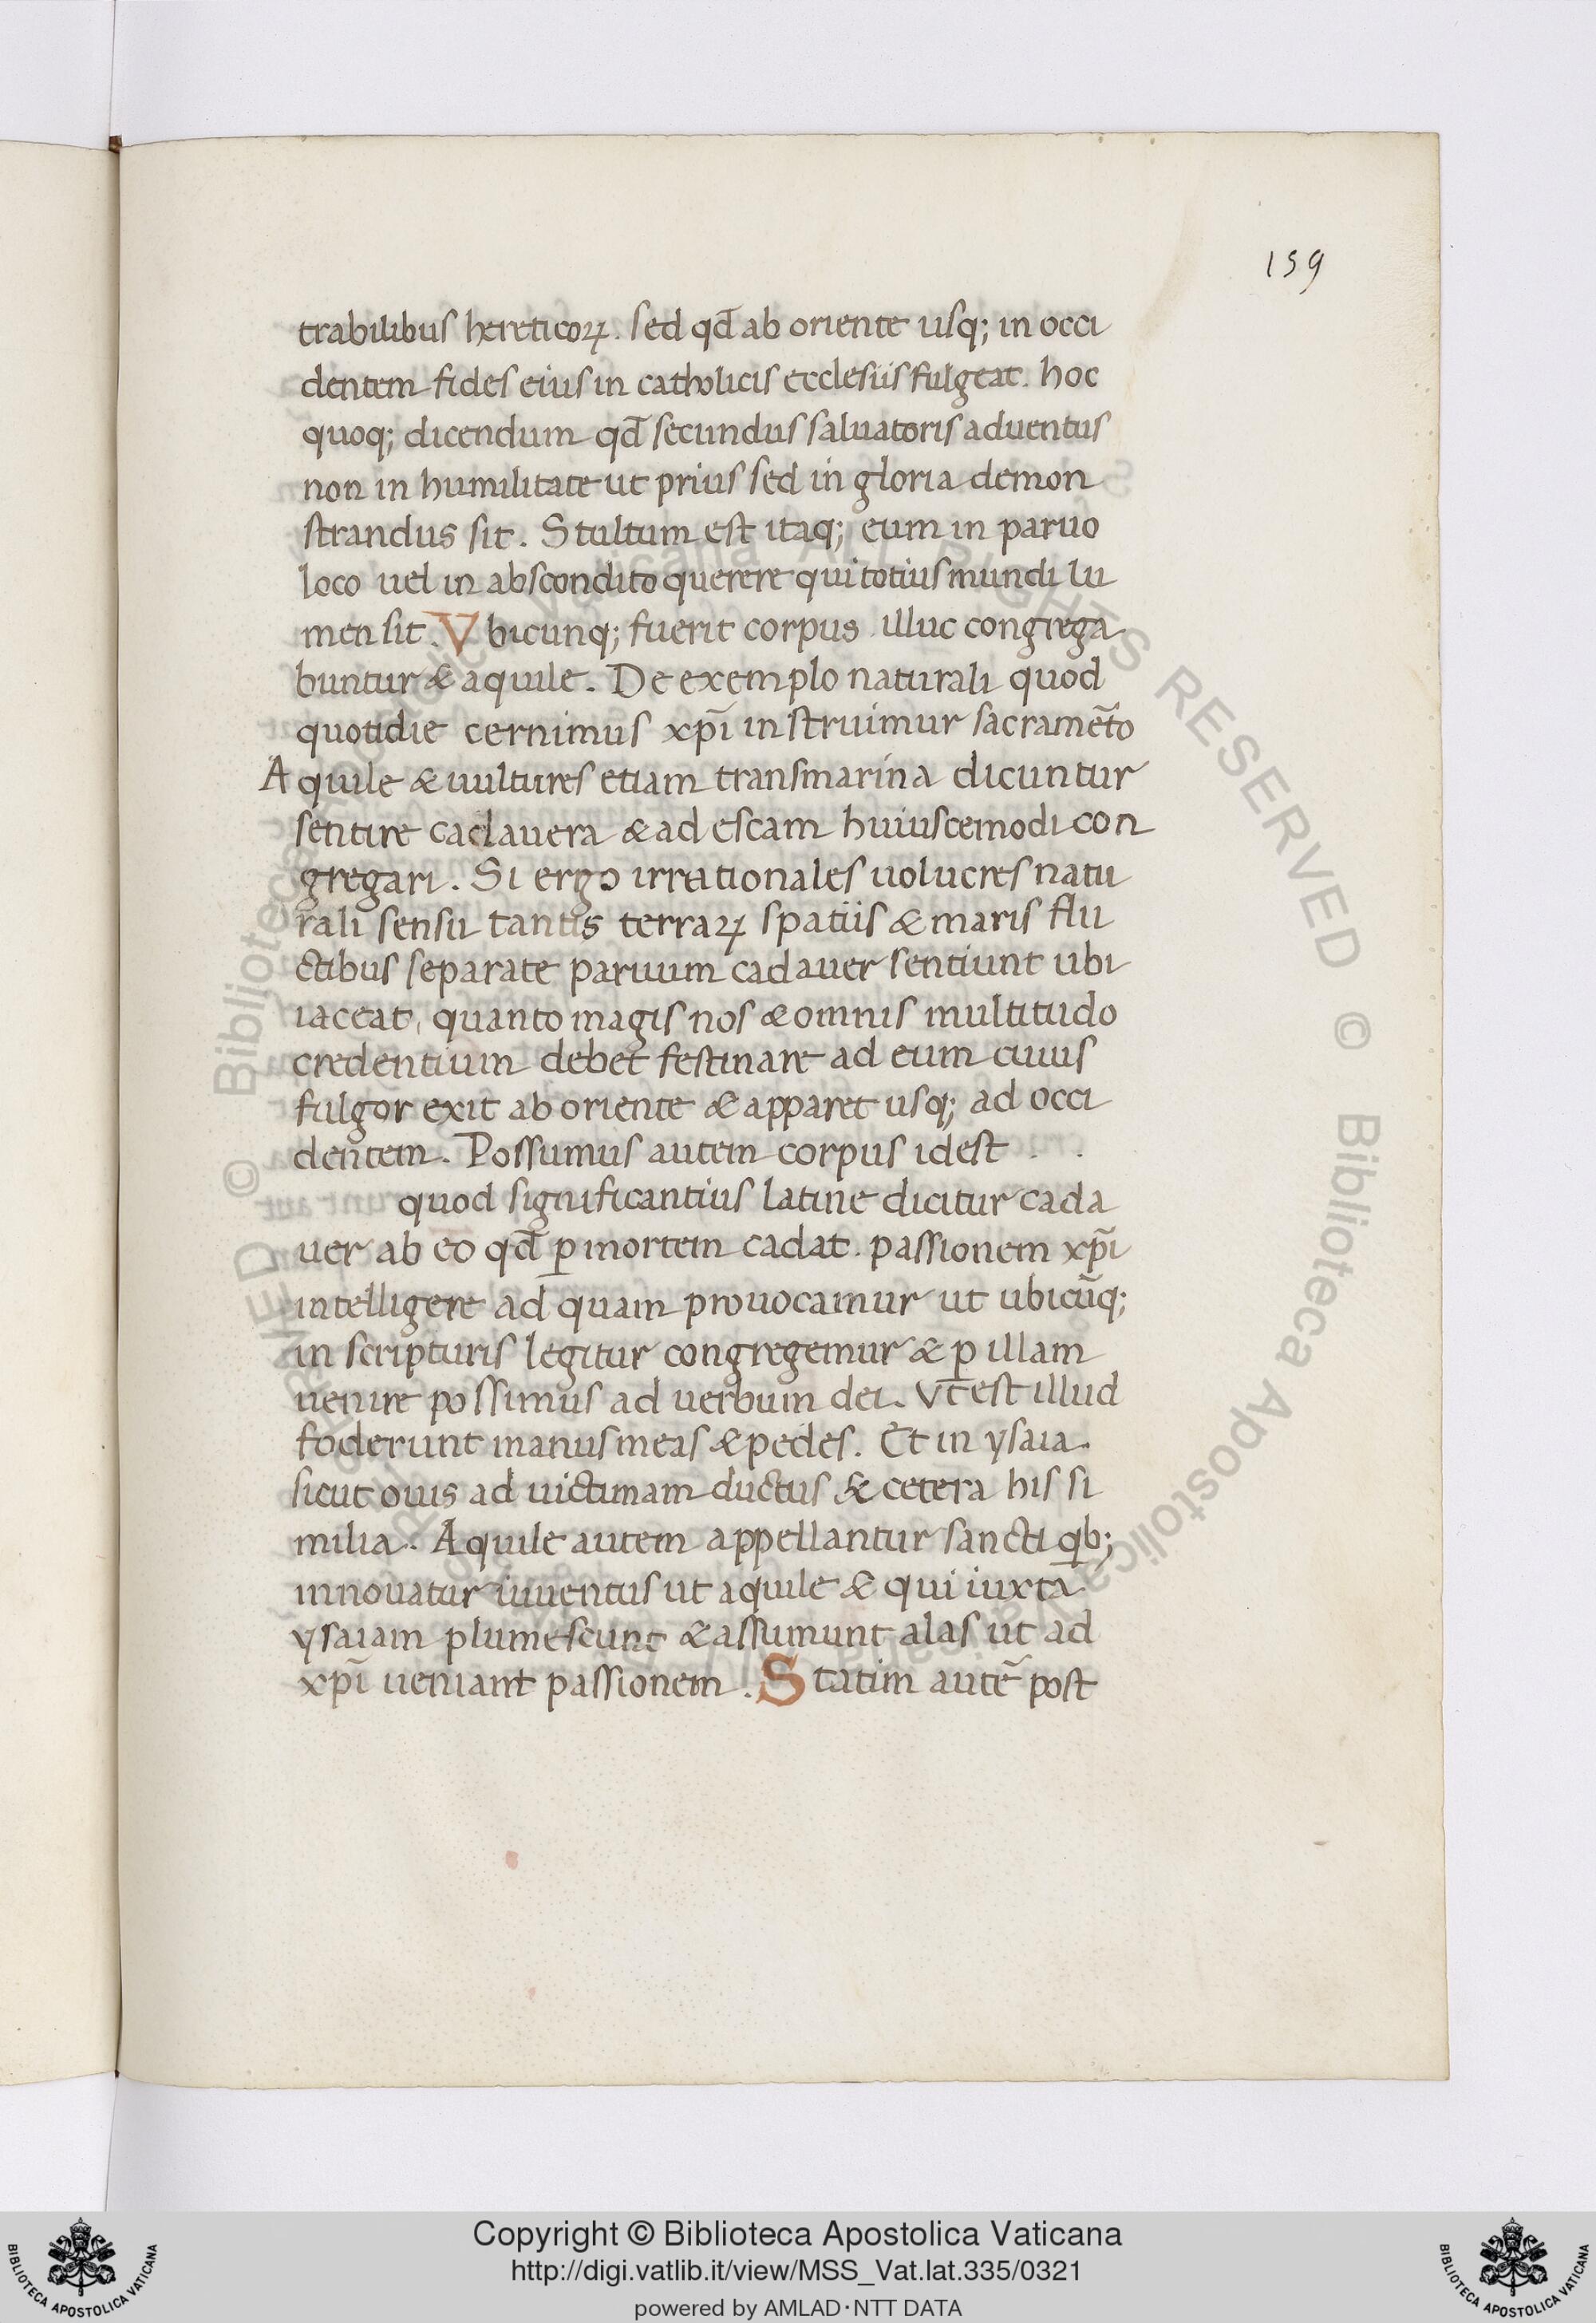 159
trabilibus hereticoꝝ. sed qđ ab oriente usq; in occi
dentem fides eius in catholicis ecclesiis fulgeat. hoc
quoq; dicendum qđ secundus saluatoris aduentus
non in humilitate ut prius sed in gloria demon
strandus sit. Stultum est itaq; eum in paruo
loco uel in abscondito querere qui totius mundi lu
men sit. Vbicunq; fuerit corpus illuc congrega
buntur & aquile. De exemplo naturali quod
quotidie cernimus xp̄i instruimur sacramēto
Aquile & uultures etiam transmarina dicuntur
sentire cadauera & ad escam huiuscemodi con
gregari. Si ergo irrationales uolucres natu
rali sensu tantis terraꝝ spatiis & maris flu
ctibus separate paruum cadauer sentiunt ubi
iaceat, quanto magis nos & omnis multitudo
credentium debet festinare ad eum cuius
fulgor exit ab oriente & apparet usq; ad occi
dentem. Possumus autem corpus idest
quod significantius latine dicitur cada
uer ab eo qđ ꝑ mortem cadat. passionem xp̄i
intelligere ad quam prouocamur ut ubicūq;
in scripturis legitur congregemur & ꝑ illam
uenire possimus ad uerbum dei. Vt est illud
foderunt manus meas & pedes. Et in ysaia.
sicut ouis ad uictimam ductus & cetera his si
milia. Aquile autem appellantur sancti qb;
innouatur iuuentus ut aquile & qui iuxta
ysaiam plumescunt & assumunt alas ut ad
xp̄i ueniant passionem. Statim autē post
© Biblioteca Apostolica Vaticana ALL RIGHTS RESERVED © Biblioteca Apostolica Vaticana
Copyright © Biblioteca Apostolica Vaticana
http://digi.vatlib.it/view/MSS_Vat.lat.335/0321
powered by AMLAD·NTT DATA
BIBLIOTECA APOSTOLICA VATICANA
BIBLIOTECA APOSTOLICA VATICANA